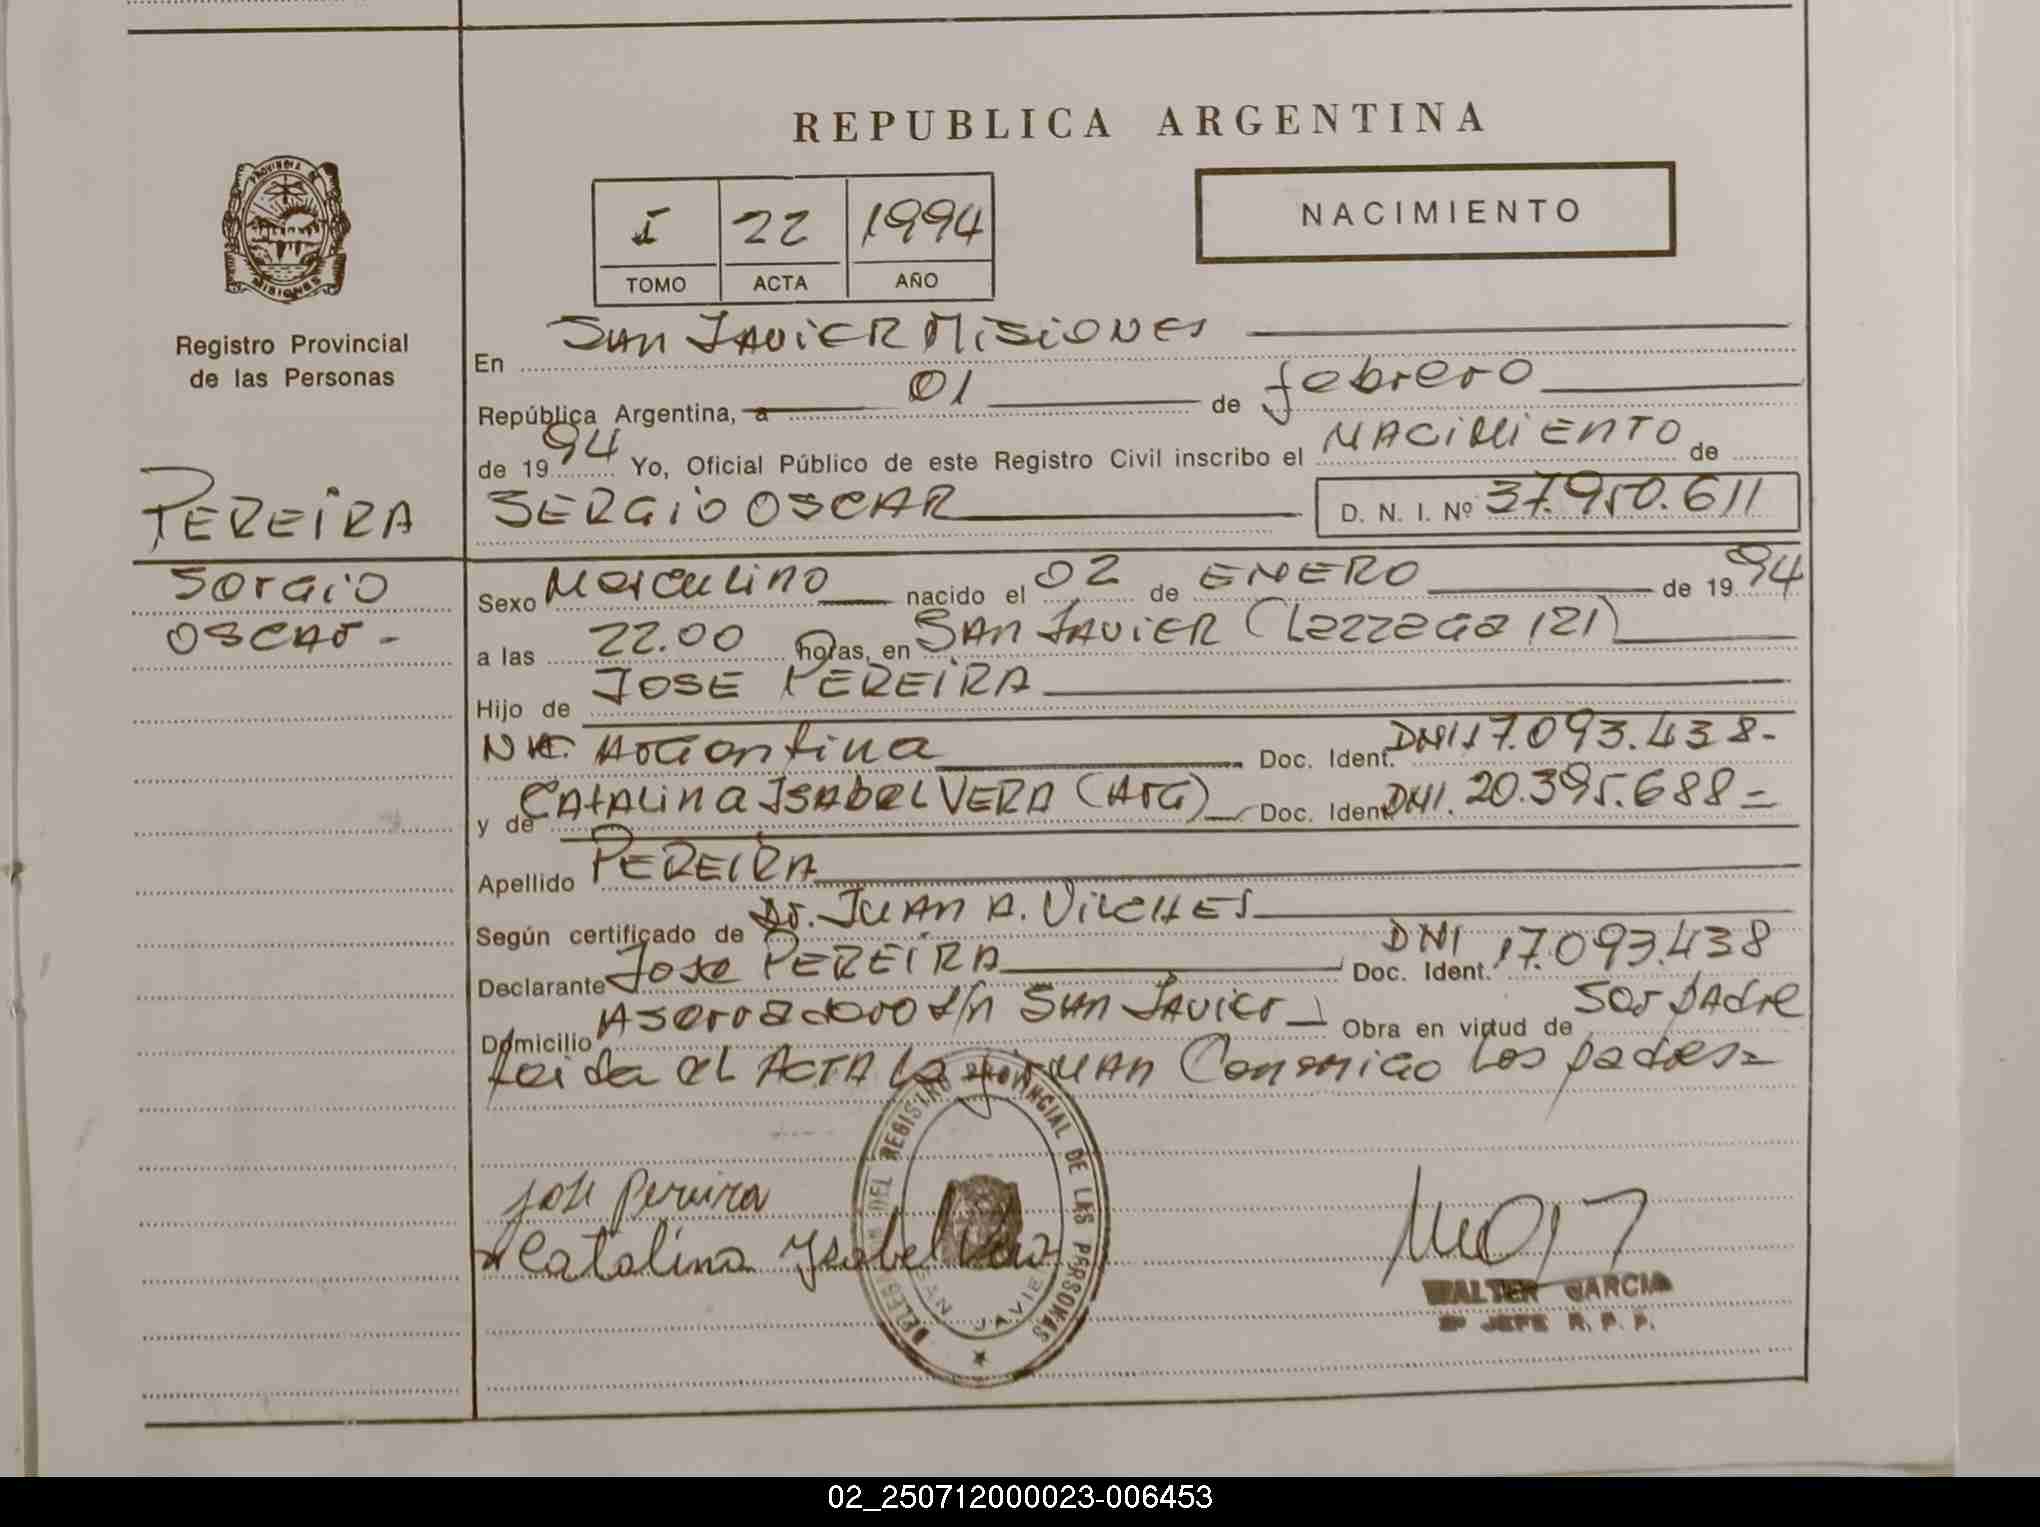 REPUBLICA ARGENTINA
PROVINCIA DE
MISIONES
I 22 1994
TOMO ACTA AÑO
NACIMIENTO
Registro Provincial
de las Personas
PEREIRA
Sergio
Oscar -
En SAN JAVIER MISIONES
República Argentina, a 01 de febrero
de 1994 Yo, Oficial Público de este Registro Civil inscribo el NACIMIENTO de
SERGIO OSCAR D. N. I. Nº 37.950.611
Sexo Masculino nacido el 02 de ENERO de 1994
a las 22.00 horas, en SAN JAVIER (Lezzaga 121)
Hijo de JOSE PEREIRA
Na. Argentina Doc. Ident. DNI 17.093.438-
y de CATALINA ISABEL VERA (Arg) Doc. Ident. DNI. 20.395.688=
Apellido PEREIRA
Según certificado de Dr. JUAN A. VILCHES
Declarante Jose PEREIRA Doc. Ident. DNI 17.093.438
Domicilio Aserradero s/n SAN Javier Obra en virtud de Ser padre
Leida el ACTA la firman Conmigo los padres=
Jose Pereira
Catalina Ysabel Vera
DELEGACION DEL REGISTRO PROVINCIAL DE LAS PERSONAS
SAN JAVIER
WALTER GARCIA
2º JEFE R. P. P.
02_250712000023-006453